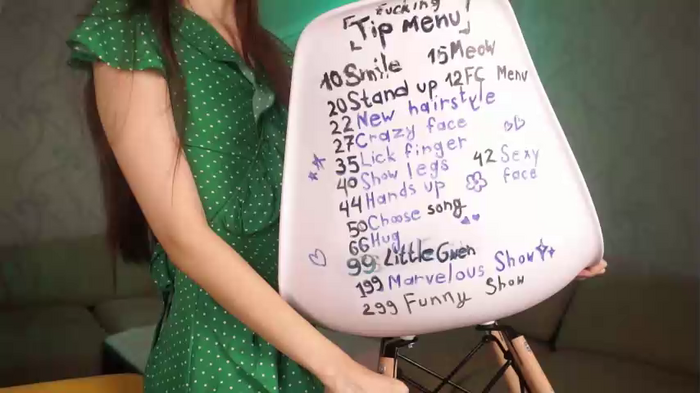 Fucking
Tip Menu
10 Smile 15 Meow
20 Stand up 12 FC Menu
22 New hairstyle
27 Crazy face
35 Lick finger
40 Show legs 42 Sexy face
44 Hands up
50 Choose song
66 Hug
99 Little Gwen
199 Marvelous Show
299 Funny Show